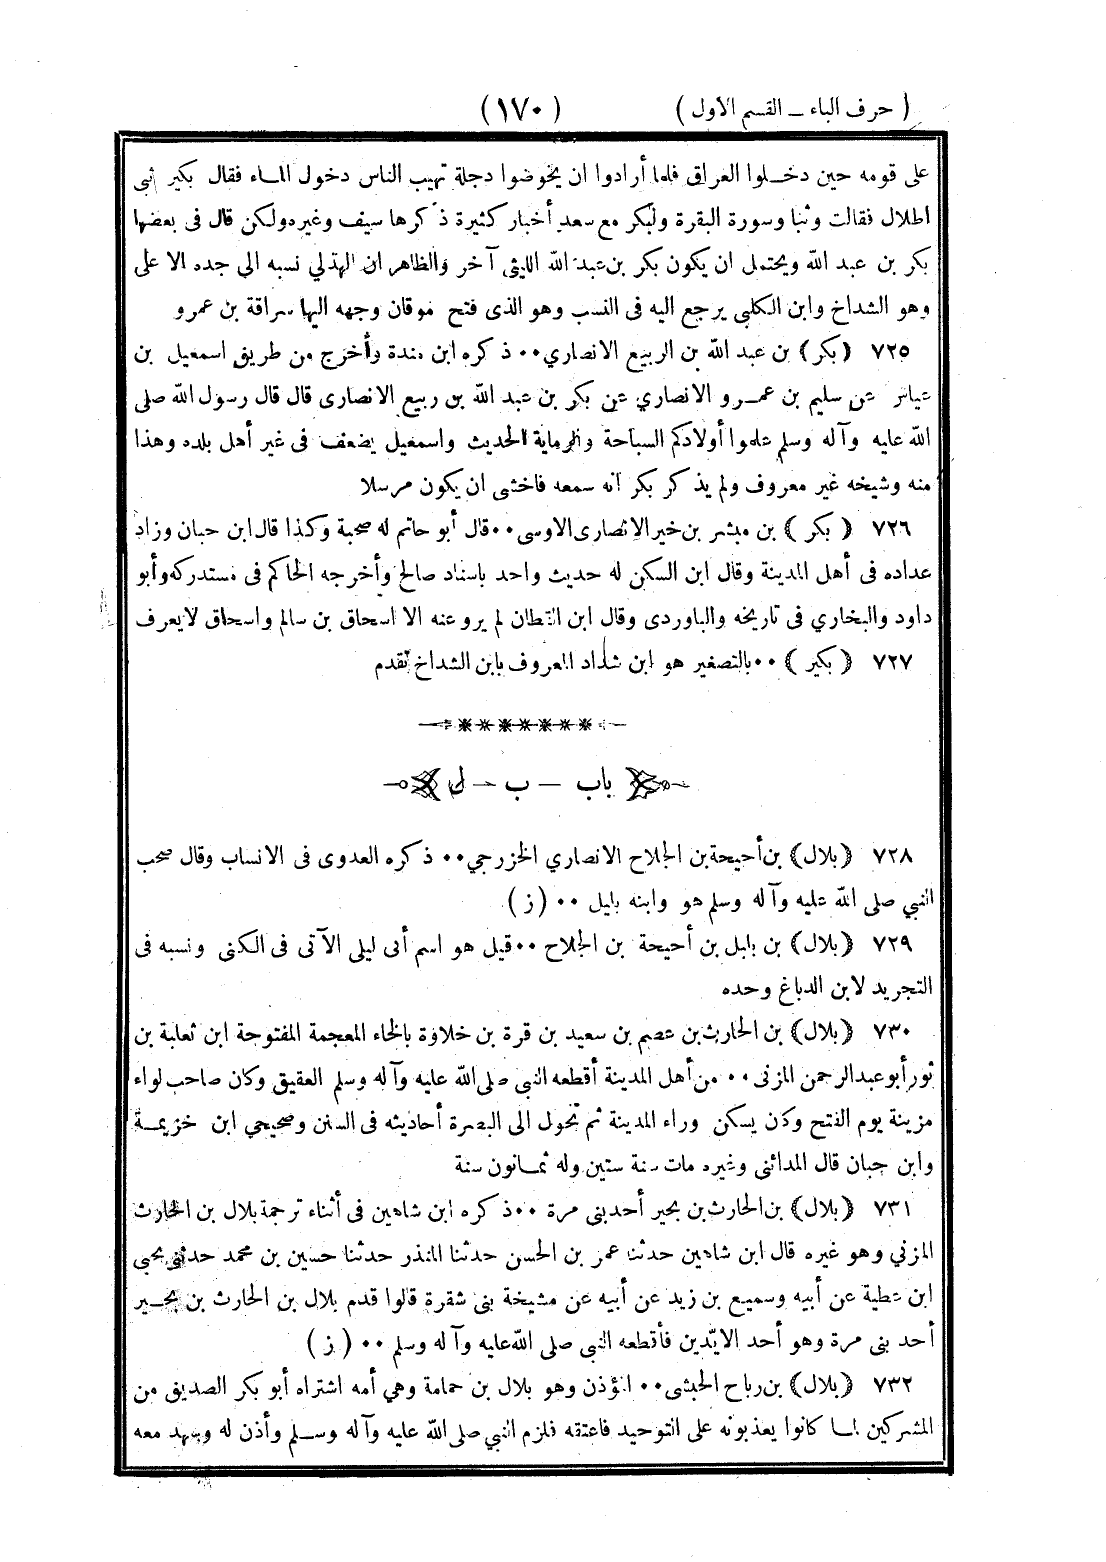 ( حرف الباء ــ القسم الاول ) (١٧٠)
على قومه حين دخلوا العراق فلما أرادوا ان يخوضوا دجلة تهيب الناس دخول الماء فقال بكير ثبى
اطلال فقالت وثبا وسورة البقرة ولبكر مع سعد أخبار كثيرة ذكرها سيف وغيره ولكن قال فى بعضها
بكر بن عبد الله ويحتمل ان يكون بكر بن عبد الله الليثى آخر والظاهر ان الهذلي نسبه الى جده الاعلى
وهو الشداخ وابن الكلبى يرجع اليه فى النسب وهو الذى فتح موقان وجهه اليها سراقة بن عمرو
٧٢٥ (بكر) بن عبد الله بن الربيع الانصاري٠٠ ذكره ابن مندة وأخرج من طريق اسمعيل بن
عياش عن سليم بن عمرو الانصاري عن بكر بن عبد الله بن ربيع الانصارى قال قال رسول الله صلى
الله عليه وآله وسلم علموا أولادكم السباحة والرماية الحديث واسمعيل يضعف فى غير أهل بلده وهذا
منه وشيخه غير معروف ولم يذكر بكر انه سمعه فاخشى ان يكون مرسلا
٧٢٦ (بكر) بن مبشر بن خير الانصارى الاوسى٠٠ قال أبو حاتم له صحبة وكذا قال ابن حبان وزاد
عداده فى أهل المدينة وقال ابن السكن له حديث واحد باسناد صالح وأخرجه الحاكم فى مستدركه وأبو
داود والبخاري فى تاريخه والباوردى وقال ابن القطان لم يرو عنه الا اسحاق بن سالم واسحاق لايعرف
٧٢٧ (بكير) ٠٠ بالتصغير هو ابن شداد المعروف بابن الشداخ تقدم
باب — ب — ل
٧٢٨ (بلال) بن أحيحة بن الجلاح الانصاري الخزرجي٠٠ ذكره العدوى فى الانساب وقال صحب
النبي صلى الله عليه وآله وسلم هو وابنه بليل ٠٠ (ز)
٧٢٩ (بلال) بن بليل بن أحيحة بن الجلاح ٠٠ قيل هو اسم أبى ليلى الآتى فى الكنى ونسبه فى
التجريد لابن الدباغ وحده
٧٣٠ (بلال) بن الحارث بن عصم بن سعيد بن قرة بن خلاوة بالخاء المعجمة المفتوحة ابن ثعلبة بن
ثور أبو عبد الرحمن المزنى ٠٠ من أهل المدينة أقطعه النبى صلى الله عليه وآله وسلم العقيق وكان صاحب لواء
مزينة يوم الفتح وكان يسكن وراء المدينة ثم تحول الى البصرة أحاديثه فى السنن وصحيحي ابن خزيمة
وابن حبان قال المدائنى وغيره مات سنة ستين وله ثمانون سنة
٧٣١ (بلال) بن الحارث بن بحير أحد بنى مرة ٠٠ ذكره ابن شاهين فى أثناء ترجمة بلال بن الحارث
المزني وهو غيره قال ابن شاهين حدثنا عمر بن الحسن حدثنا المنذر حدثنا حسين بن محمد حدثنى يحيى
ابن عطية عن أبيه وسميع بن زيد عن أبيه عن مشيخة بنى شقرة قالوا قدم بلال بن الحارث بن بحير
أحد بنى مرة وهو أحد الايدين فأقطعه النبى صلى الله عليه وآله وسلم ٠٠ (ز)
٧٣٢ (بلال) بن رباح الحبشى٠٠ المؤذن وهو بلال بن حمامة وهي أمه اشتراه أبو بكر الصديق من
المشركين لما كانوا يعذبونه على التوحيد فاعتقه فلزم النبي صلى الله عليه وآله وسلم وأذن له وشهد معه